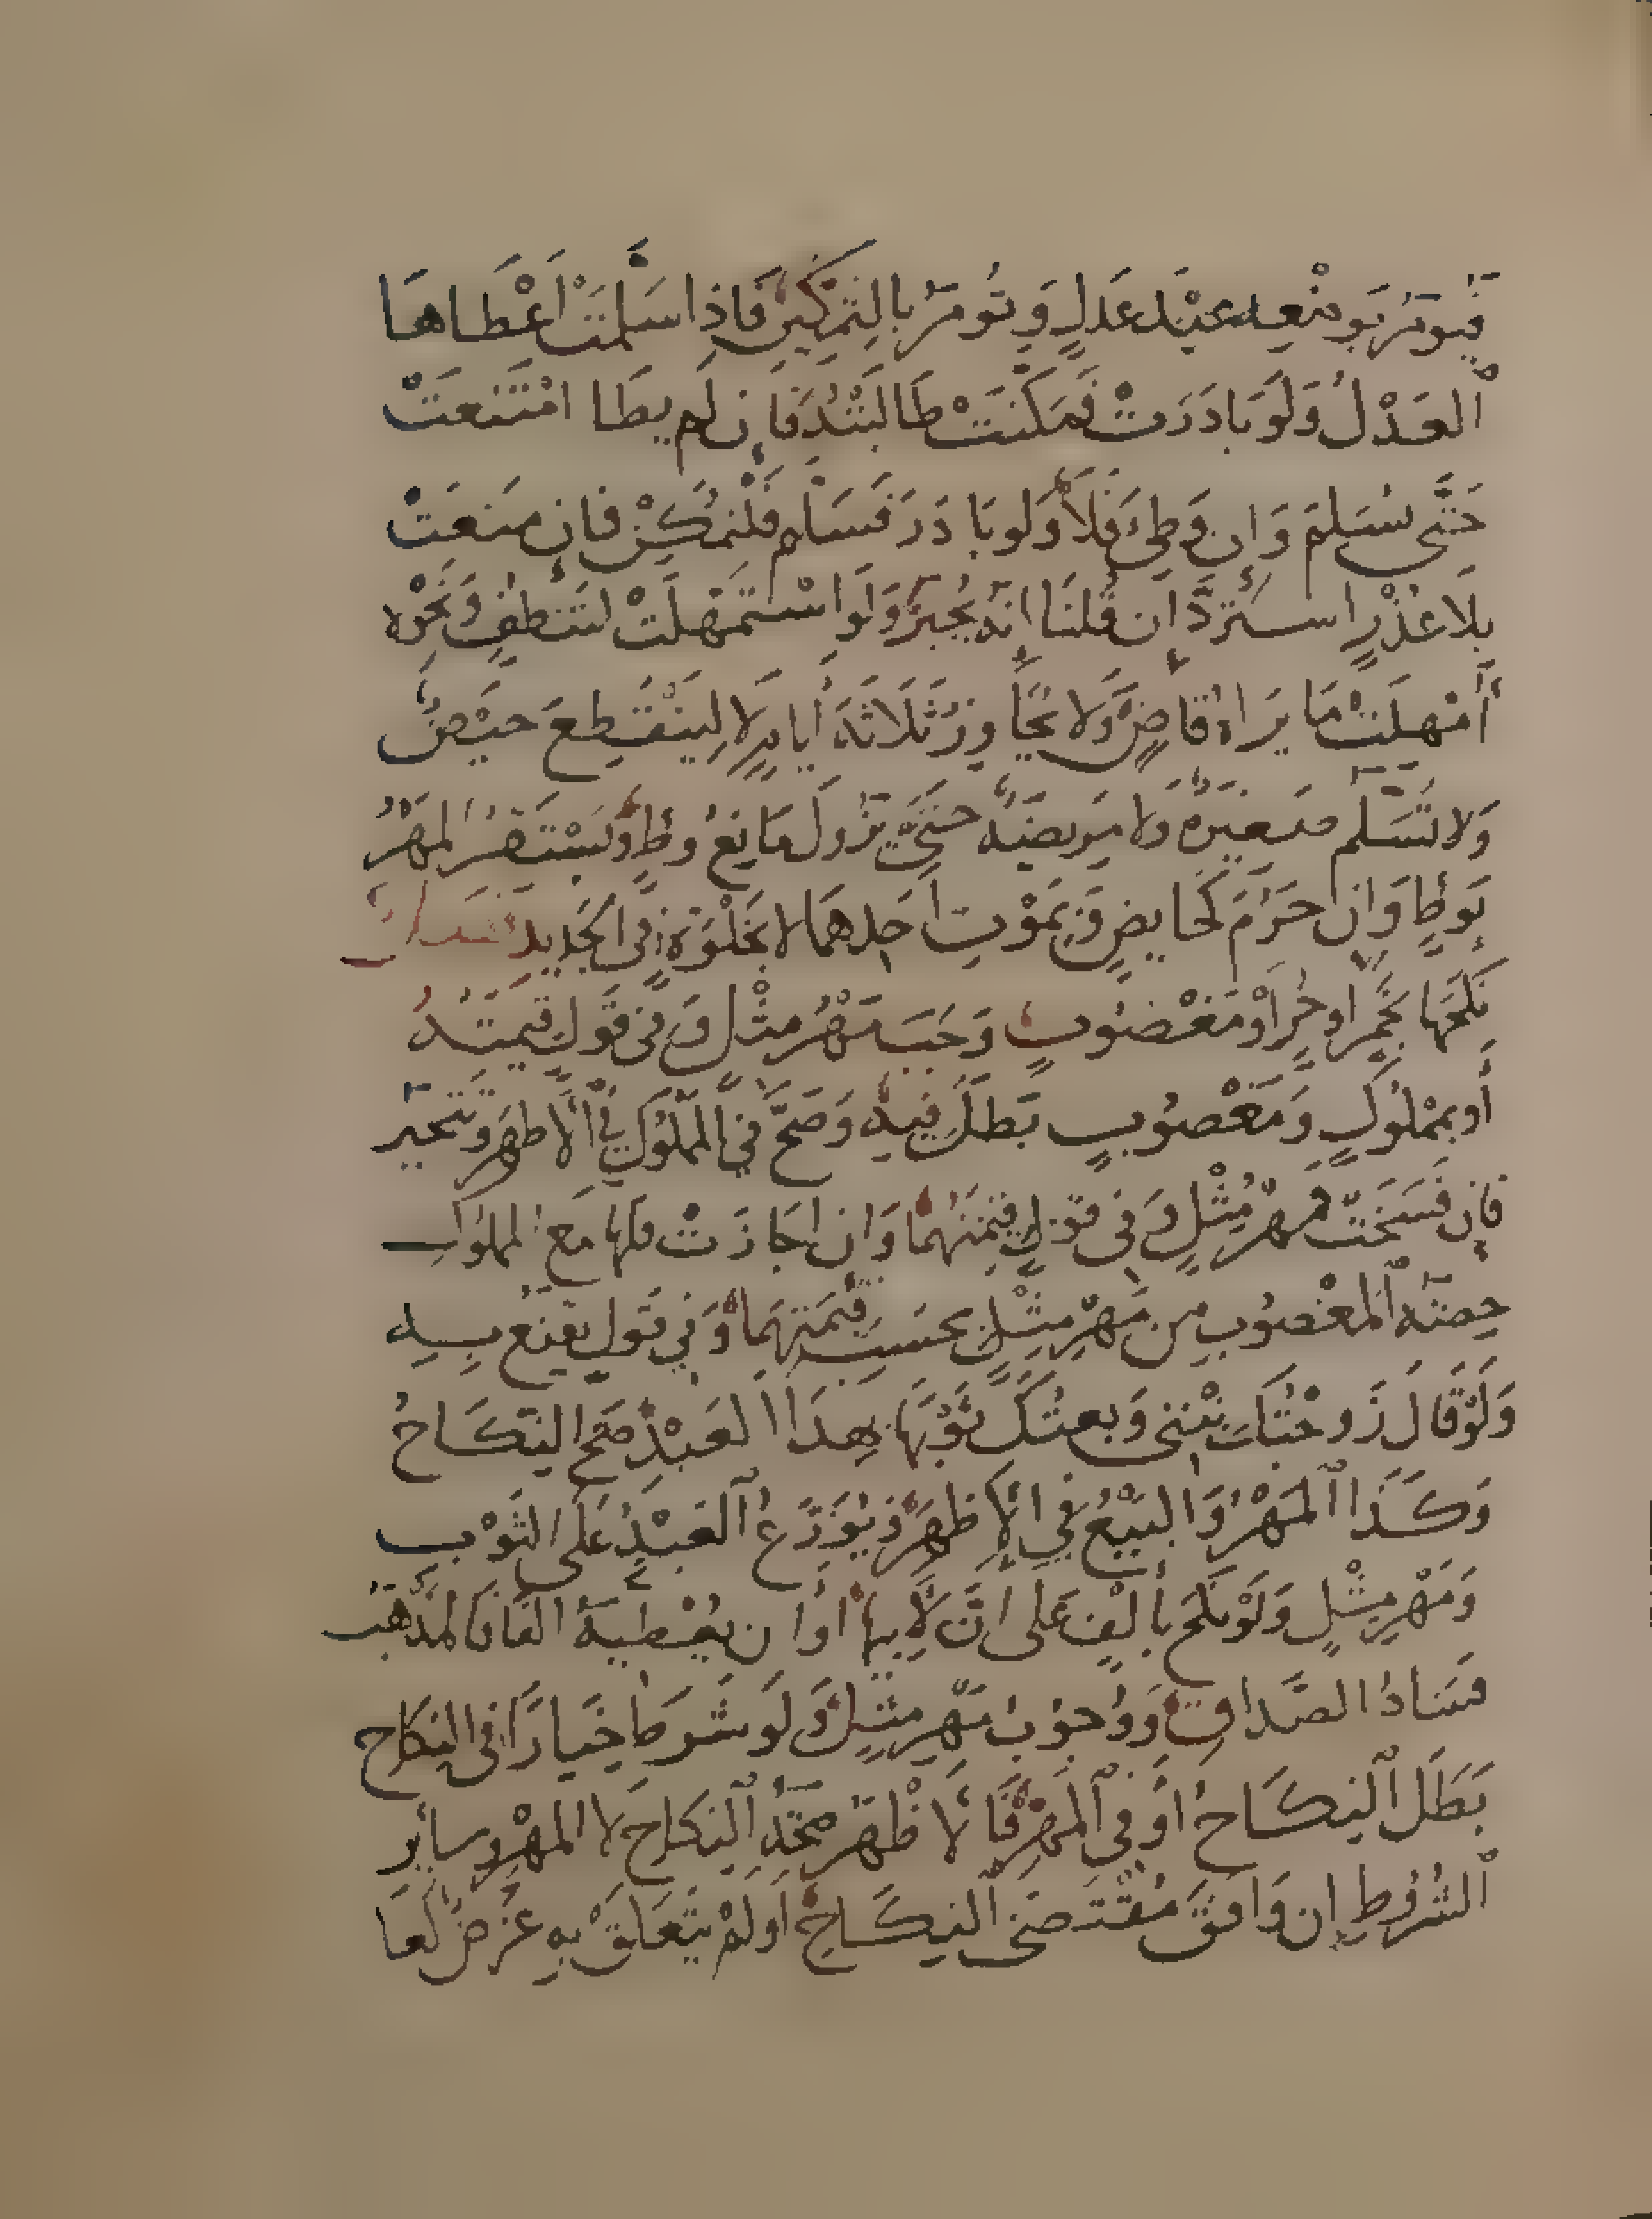 فيؤمر بوضعه عند عدل وتؤمر بالتمكين فاذا سلمت اعطاها
العدل ولو بادرت فمكنت طالبته فإن لم يطا امتنعت
حتى يسلم وإن وطئ فلا ولو بادر فسلم فلتمكن فإن منعت
بلا عذر استرد إن قلنا إنه يجبر ولو استمهلت لتنظف ونحوه
أمهلت ما يراه قاض ولا يجاوز ثلاثة أيام لا لينقطع حيض
ولا تسلم صغيرة ولا مريضة حتى يزول مانع وطء ويستقر المهر
بوطء وان حرم كحايض وبموت احدهما لا بخلوة في الجديد فصل
نكحها بخمر او حر او مغصوب وجب مهر مثل وفي قول قيمته
أو بمملوك ومغصوب بطل فيه وصح في المملوك في الأظهر وتتخير
فإن فسخت فمهر مثل وفي قول قيمتهما وان اجازت فلها مع المملوك
حصة المغصوب من مهر مثل بحسب قيمتهما وفي قول يقنع به
ولو قال زوجتك بنتي وبعتك ثوبها بهذا العبد صح النكاح
وكذا المهر والبيع في الأظهر ويوزع العبد على الثوب
ومهر مثل ولو نكح بألف على ان لأبيها او ان يعطيه الفا فالمذهب
فساد الصداق ووجوب مهر مثل ولو شرط خيارا في النكاح
بطل النكاح او في المهر فالأظهر صحة النكاح لا المهر وساير
الشروط إن وافق مقتضى النكاح او لم يتعلق به غرض لغا